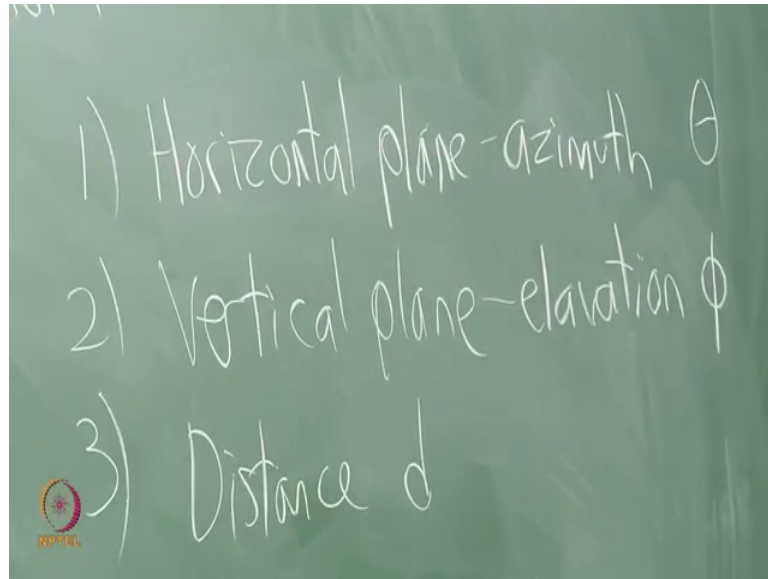 1) Horizontal plane-azimuth θ
2) Vertical plane-elavation ϕ
3) Distance d
NPTEL